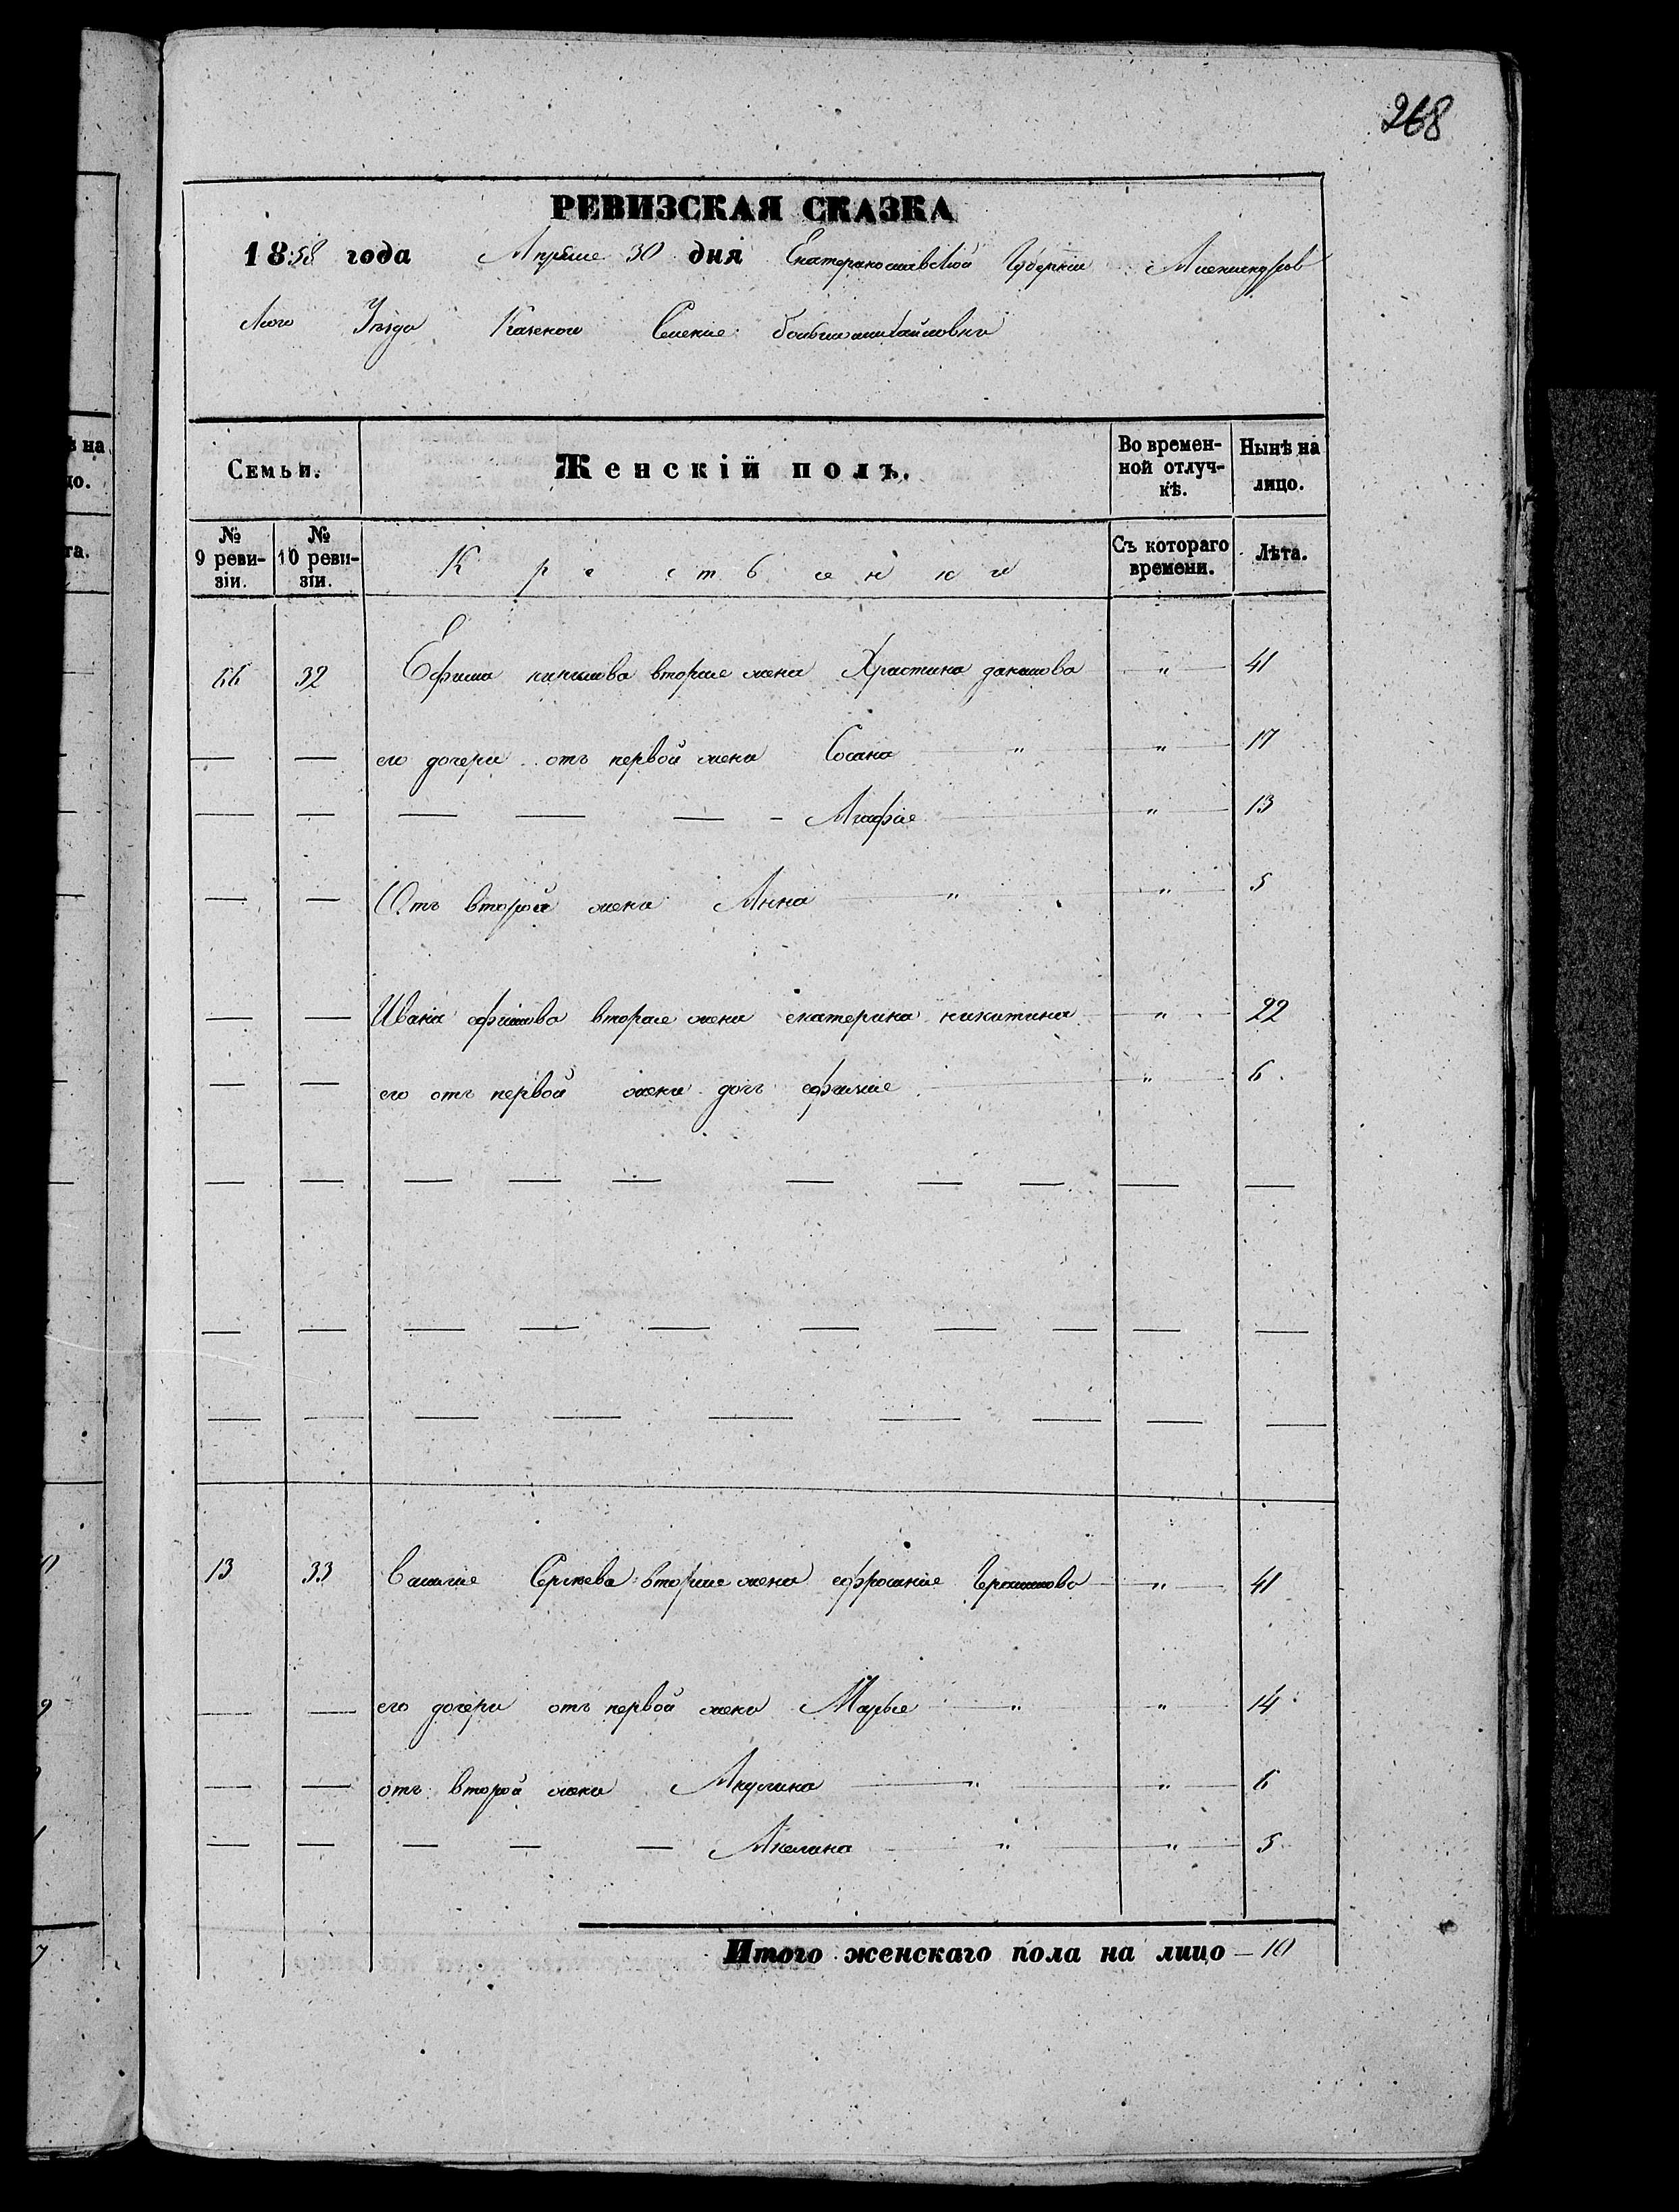 268
РЕВИЗСКАЯ СКАЗКА
1858 года Апреля 30 дня Екатеринославской Губернии Александров
ского Уезда Казеной Селение Большемихайловки
Семьи. Женскій полъ. Во времен-ной отлуч-кѣ. Нынѣ на лицо.
№ 9 реви-зіи. № 10 реви-зіи. Крестьянки Съ котораго времени. Лѣта.
66 32 Ефима вторая жена Христина данилова " 41
— — его дочери отъ первой жены Сосана " " 17
— — — — — — Агафія " 13
— — Отъ второй жены Анна " " 5
— — Ивана ефимова вторая жена екатерина никитина " 22
— — его отъ первой жены дочь ефимия " 6
— — — — — — — — — —
— — — — — — — — — —
— — — — — — — — —
13 33 Василия Сергеева вторая жена ефросиния " 41
— — его дочери отъ первой жены Марья " " 14
— — отъ второй жены Акулина " " 6
— — — — — " " 5
Итого женскаго пола на лицо — 10
на
цо.
та.